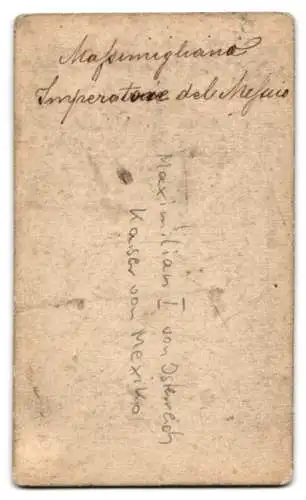 Massimigliano
Imperatore del Messico
Maximilian I von Österreich
Kaiser von Mexiko